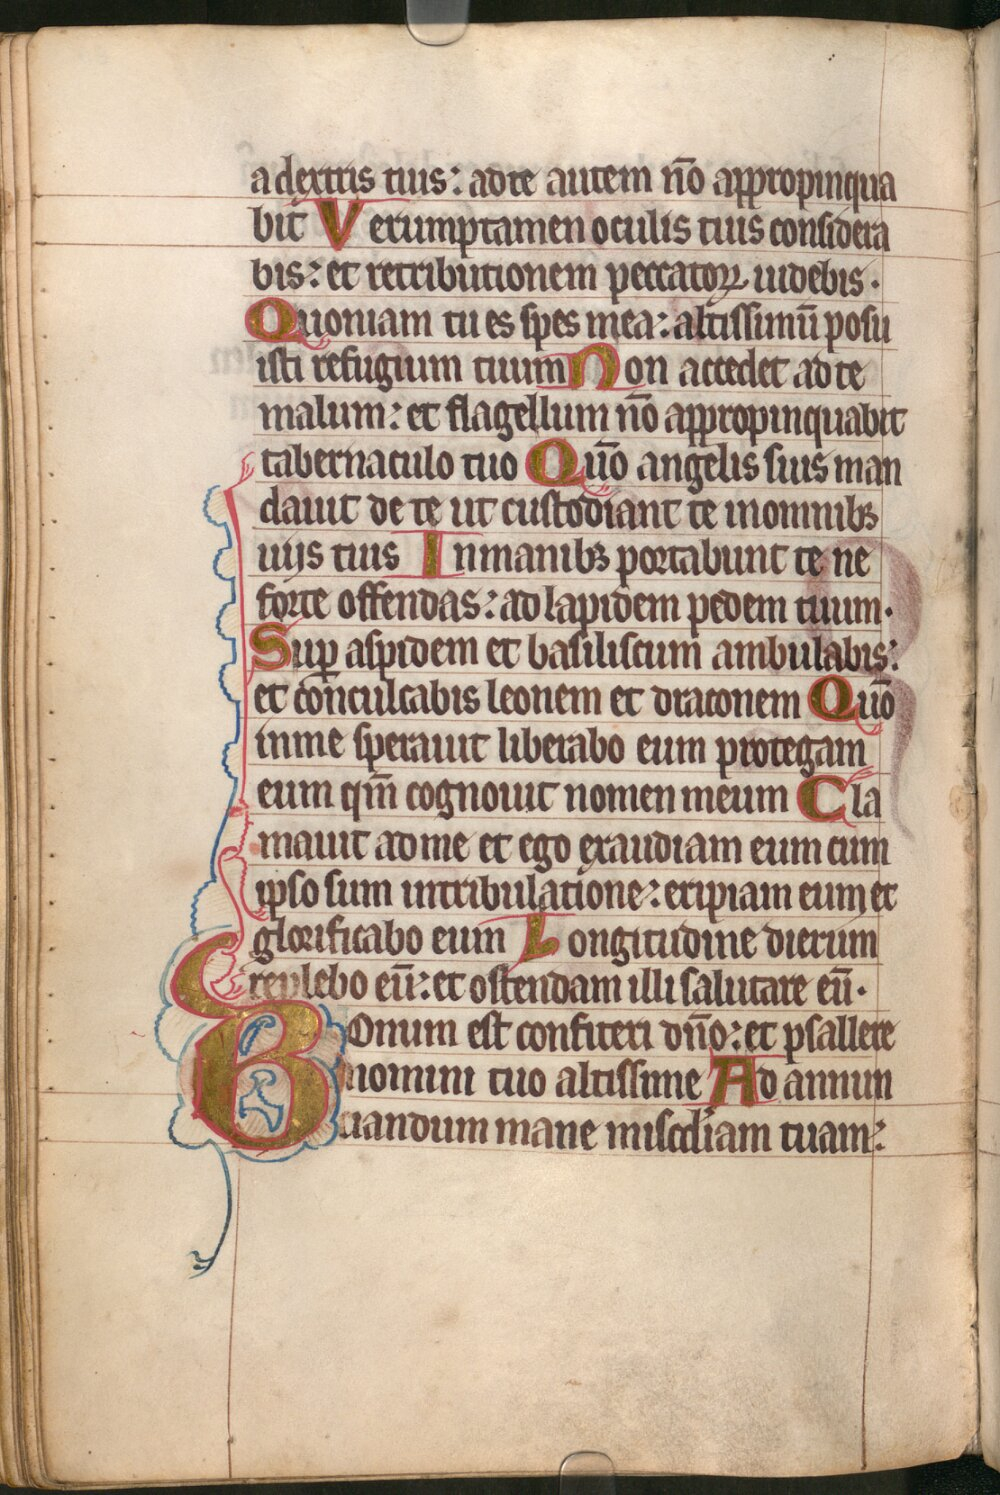 a dextris tuis: ad te autem nō appropinqua
bit Verumptamen oculis tuis considera
bis: et retributionem peccatoꝝ uidebis.
Quoniam tu es spes mea: altissimū posu
isti refugium tuum Non accedet ad te
malum: et flagellum nō appropinquabit
tabernaculo tuo Quō angelis suis man
dauit de te ut custodiant te in omnibꝫ
uijs tuis In manibꝫ portabunt te ne
forte offendas: ad lapidem pedem tuum.
Suꝑ aspidem et basiliscum ambulabis:
et conculcabis leonem et draconem Quō
in me sperauit liberabo eum protegam
eum qm̄ cognouit nomen meum Cla
mauit ad me et ego exaudiam eum cum
ipso sum in tribulatione: eripiam eum et
glorificabo eum Longitudine dierum
replebo eū: et ostendam illi salutare eū.
Bonum est confiteri dn̄o: et psallere
nomini tuo altissime Ad annun
ciandum mane misc̄diam tuam: